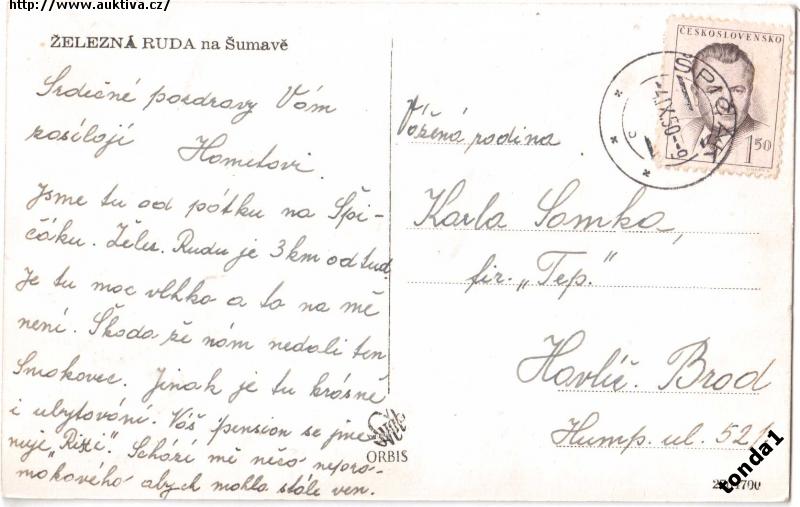 http://www.auktiva.cz/
ŽELEZNÁ RUDA na Šumavě
Srdečné pozdravy Vám
zasílají Hametovi.
Jsme tu od pátku na Špi-
čáku. Želez. Rudu je 3 km odtud.
Je tu moc vlhko a to na mě
není. Škoda že nám nedali ten
Smokovec. Jinak je tu krásně
i ubytování. Váš pension se jme-
nuje „Rixi". Schází mě něco nepro-
mokavého abych mohla stále ven.
ORBIS
ČESKOSLOVENSKO
1 50
ŠPIČÁK
-4.IX.50-9
Vážená rodina
Karla Samka,
fir. „Tep."
Havlíč. Brod
Hump. ul. 521
tonda1